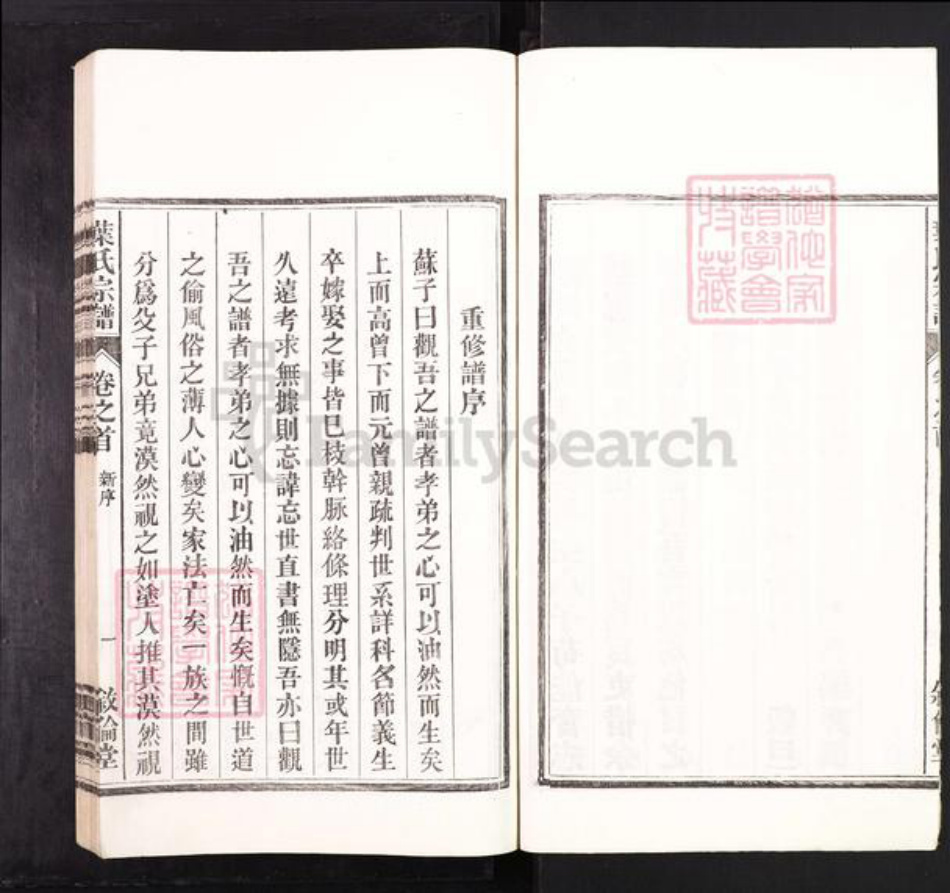 重修譜序
蘇子曰觀吾之譜者孝弟之心可以油然而生矣
上而高曾下而元曾親疏判世系詳科名節義生
卒嫁娶之事皆已枝幹脉絡條理分明其或年世
久遠考求無據則忘諱忘世直書無隱吾亦曰觀
吾之譜者孝弟之心可以油然而生矣慨自世道
之偷風俗之薄人心變矣家法亡矣一族之間雖
分爲父子兄弟竟漠然視之如塗人推其漠然視
葉氏宗譜
卷之首
新序
一
敘倫堂
譜學會
FamilySearch